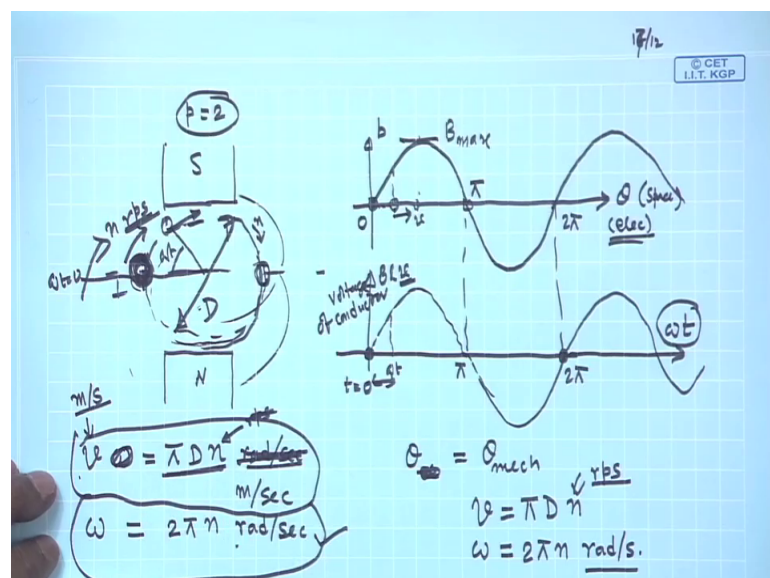 © CET
I.I.T. KGP
p = 2
S
n rps
ωt=0
ωt
n
D
N
b
Bmax
0
π
2π
θ (space)
(elec)
v
voltage
of conductor
BLv
t=0
ωt
π
2π
ωt
m/s
v = πDn
m/sec
ω = 2πn rad/sec
θ = θmech
rps
v = πDn
ω = 2πn rad/s.